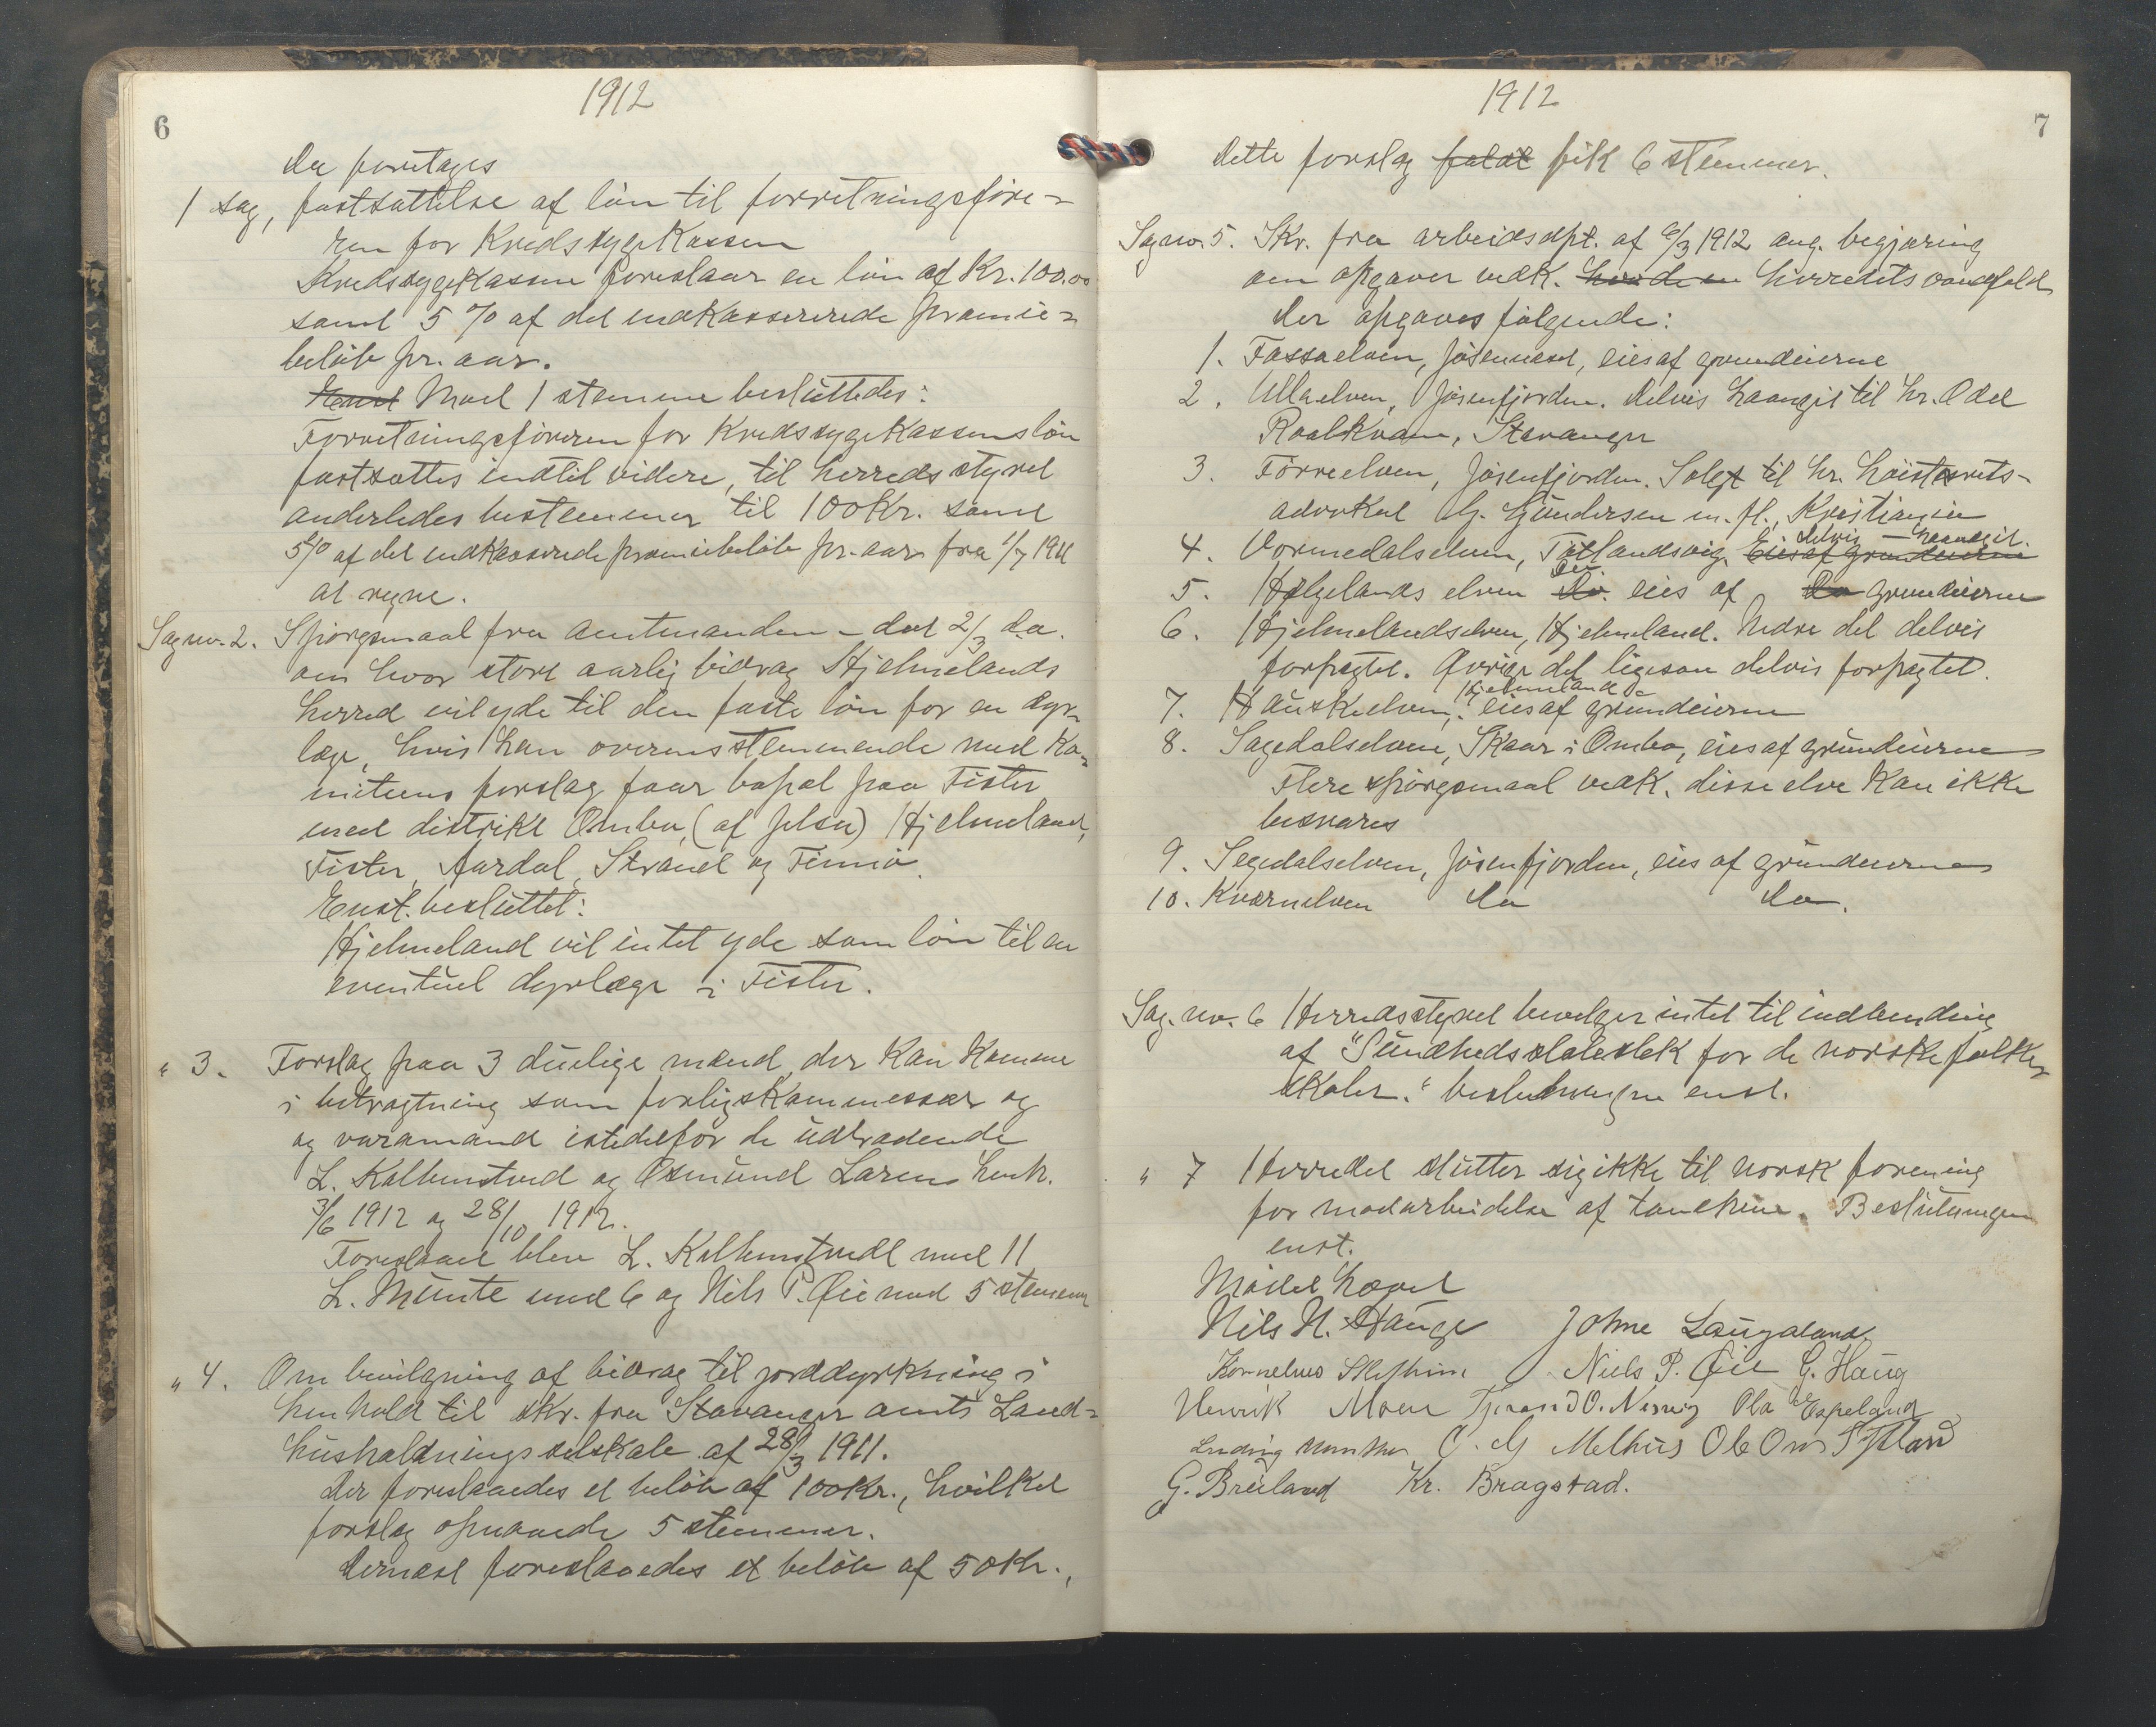 1912
6
Der foretages
1 sag, fastsættelse af løn til forretningsføre-
ren for Kredssygekassen
Kredssygekassen foreslaar en løn af Kr. 100.00
samt 5 % af det indkasserede præmie-
beløb pr. aar.
Enst Mod 1 stemme besluttedes:
Forretningsføreren for Kredssygekassens løn
fastsættes indtil videre, til herredsstyret
anderledes bestemmer til 100 Kr. samt
5% af det indkasserede præmiebeløb pr. aar fra 1/7 1911
at regne.
Sag nr. 2. Spørgsmaal fra Amtmanden - dat 2/3 d.a.
om hvor stort aarlig bidrag Hjelmelands
herred vil yde til den faste løn for en dyr-
læge, hvis han overensstemmende med Ko-
miteens forslag faar bopæl paa Fister
med distrikt Ombo, (af Jelsa) Hjelmeland,
Fister, Aardal, Strand og Finnø.
Enst. besluttet:
Hjelmeland vil intet yde som løn til en
eventuel dyrlæge i Fister.
" 3. Forslag paa 3 duelige mænd der Kan Komme
i betragtning som forligskommessær og
og varamand istedetfor de udtrædende
L. Kalhenstved og Osmund Larsen henh.
3/6 1912 og 28/10 1912.
Foreslaaet blev L. Kalhenstvedt med 11
L. Munte med 6 og Nils P. Øie med 5 stemmer
" 4. Om bevilgning af bidrag til jorddyrkning i
henhold til skr. fra Stavanger amts Land-
husholdningsselskab af 28/3 1911.
Der foreslaaedes et beløb af 100 Kr., hvilket
forslag opnaaede 5 stemmer.
Dernæst foreslaaedes et beløb af 50 Kr.,
1912
7
Dette forslag faldt fik 6 stemmer.
Sag nr. 5. Skr. fra arbeidsdpt. af 6/3 1912 ang. begjæring
om opgaver vedk. herredets vandfald
Der opgaves følgende:
1. Fossaelven, Jøsenneset, eies af grundeierne
2. Ullaelven, Jøsenfjorden. Delvis haangit til hr. Odd
Raalkvam, Stavanger
3. Førreelven, Jøsenfjorden. Solgt til hr. høiesterets-
advokat G. Gundersen m. fl., Kristiania
delvis - haangit.
4. Vormedalselven, Tøtlandsvig. Eies af grundeierne
5. Hølgelands elven Do. eies af Do grundeierne
6. Hjelmelandselven, Hjelmeland. Nedre del delvis
forpagtet. Øvrige del ligesaa delvis forpagtet.
Hjelmeland
7. Hauskeelven, eies af grundeierne
8. Sagedalselven, Skaar i Ombo, eies af grundeierne
Flere spørgsmaal vedk. disse elve Kan ikke
besvares
9. Segedalselven, Jøsenfjorden, eies af grundeierne
10. Kværnelven Do Do.
Sag. nr. 6 Herredsstyret bevelger intet til indbinding
af "Sundhedsstatistik for de norske folke-
skoler." beslutningen enst.
" 7 Herredet slutter sig ikke til norsk forening
for modarbeidelse af tandkine. Beslutningen
enst.
Mødet hævet
Nils N. Hauge Johne Laugaland
Kornelius Skiftun Niels P. Øie G. Haug
Henrik Moen Tjerand O. Nesvig Ola Espeland
Ludvig Munthe O. G Melhus Ole Oms Sytlan
G. Breiland Kr. Bragstad.